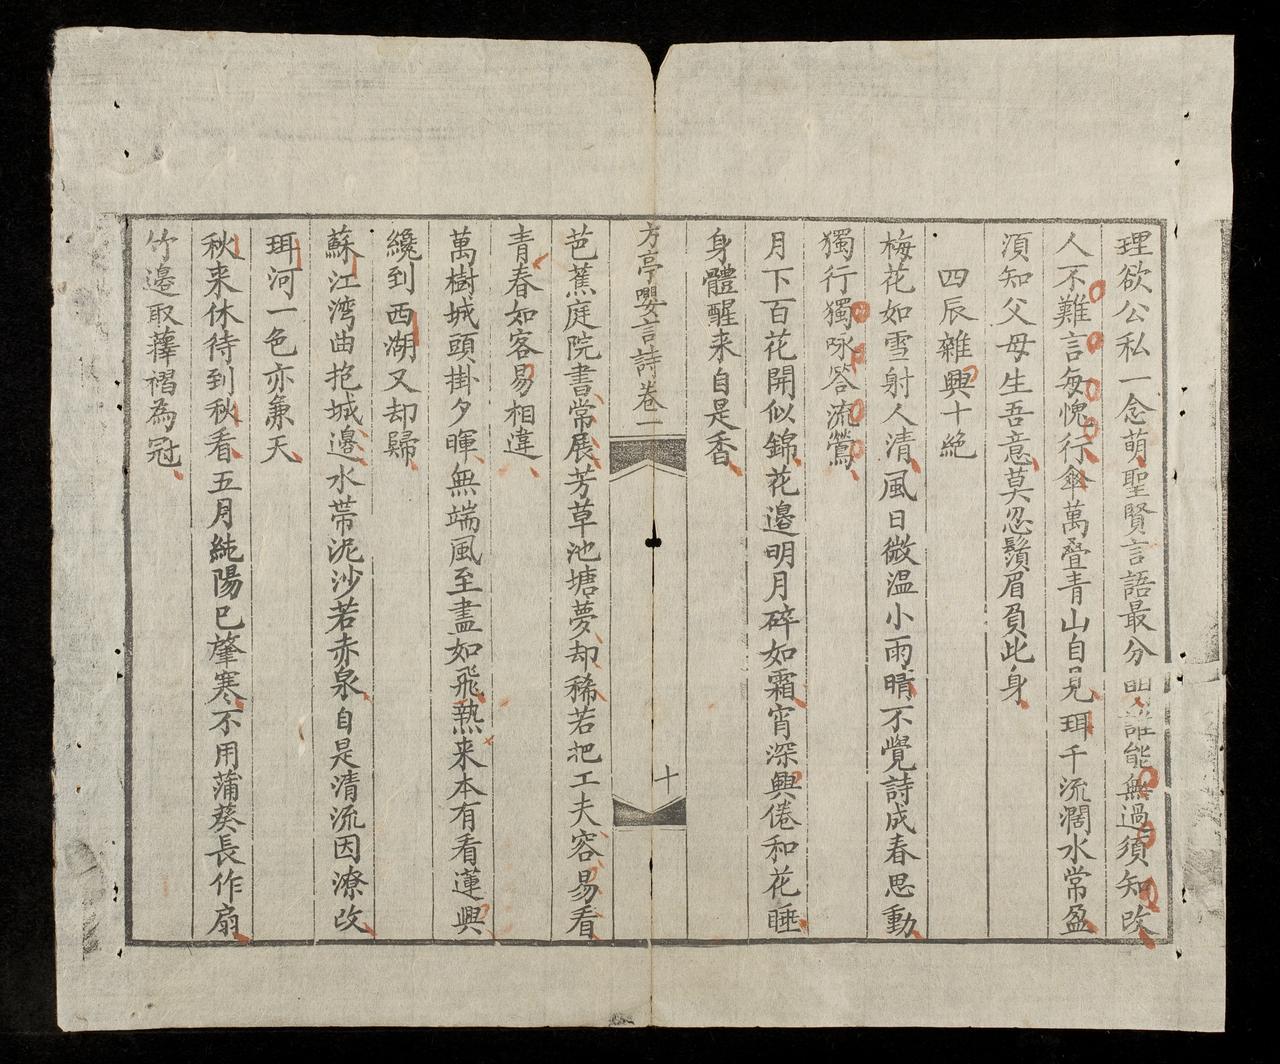 理欲公私一念萌聖賢言語最分明誰能無過須知改
人不難言每愧行傘萬疊青山自見珥千流濶水常盈
湏知父母生吾意莫忍鬚眉負此身
四辰雜興十絶
梅花如雪射人清風日微温小雨晴不覺詩成春思動
獨行獨咏答流鶯
月下百花開似錦花邉明月碎如霜宵深興倦和花睡
身體醒来自是香
方亭嚶言詩卷一
十
芭蕉庭院書常展芳草池塘夢却稀若把工夫容易看
青春如客易相違
萬樹城頭掛夕暉無端風至盡如飛熱来本有看蓮興
纔到西湖又却歸
蘇江湾曲抱城邉水帶泥沙若赤泉自是清流因潦改
珥河一色亦兼天
秋来休待到秋看五月純陽已肇寒不用蒲葵長作扇
竹邉取蘀褶為冠